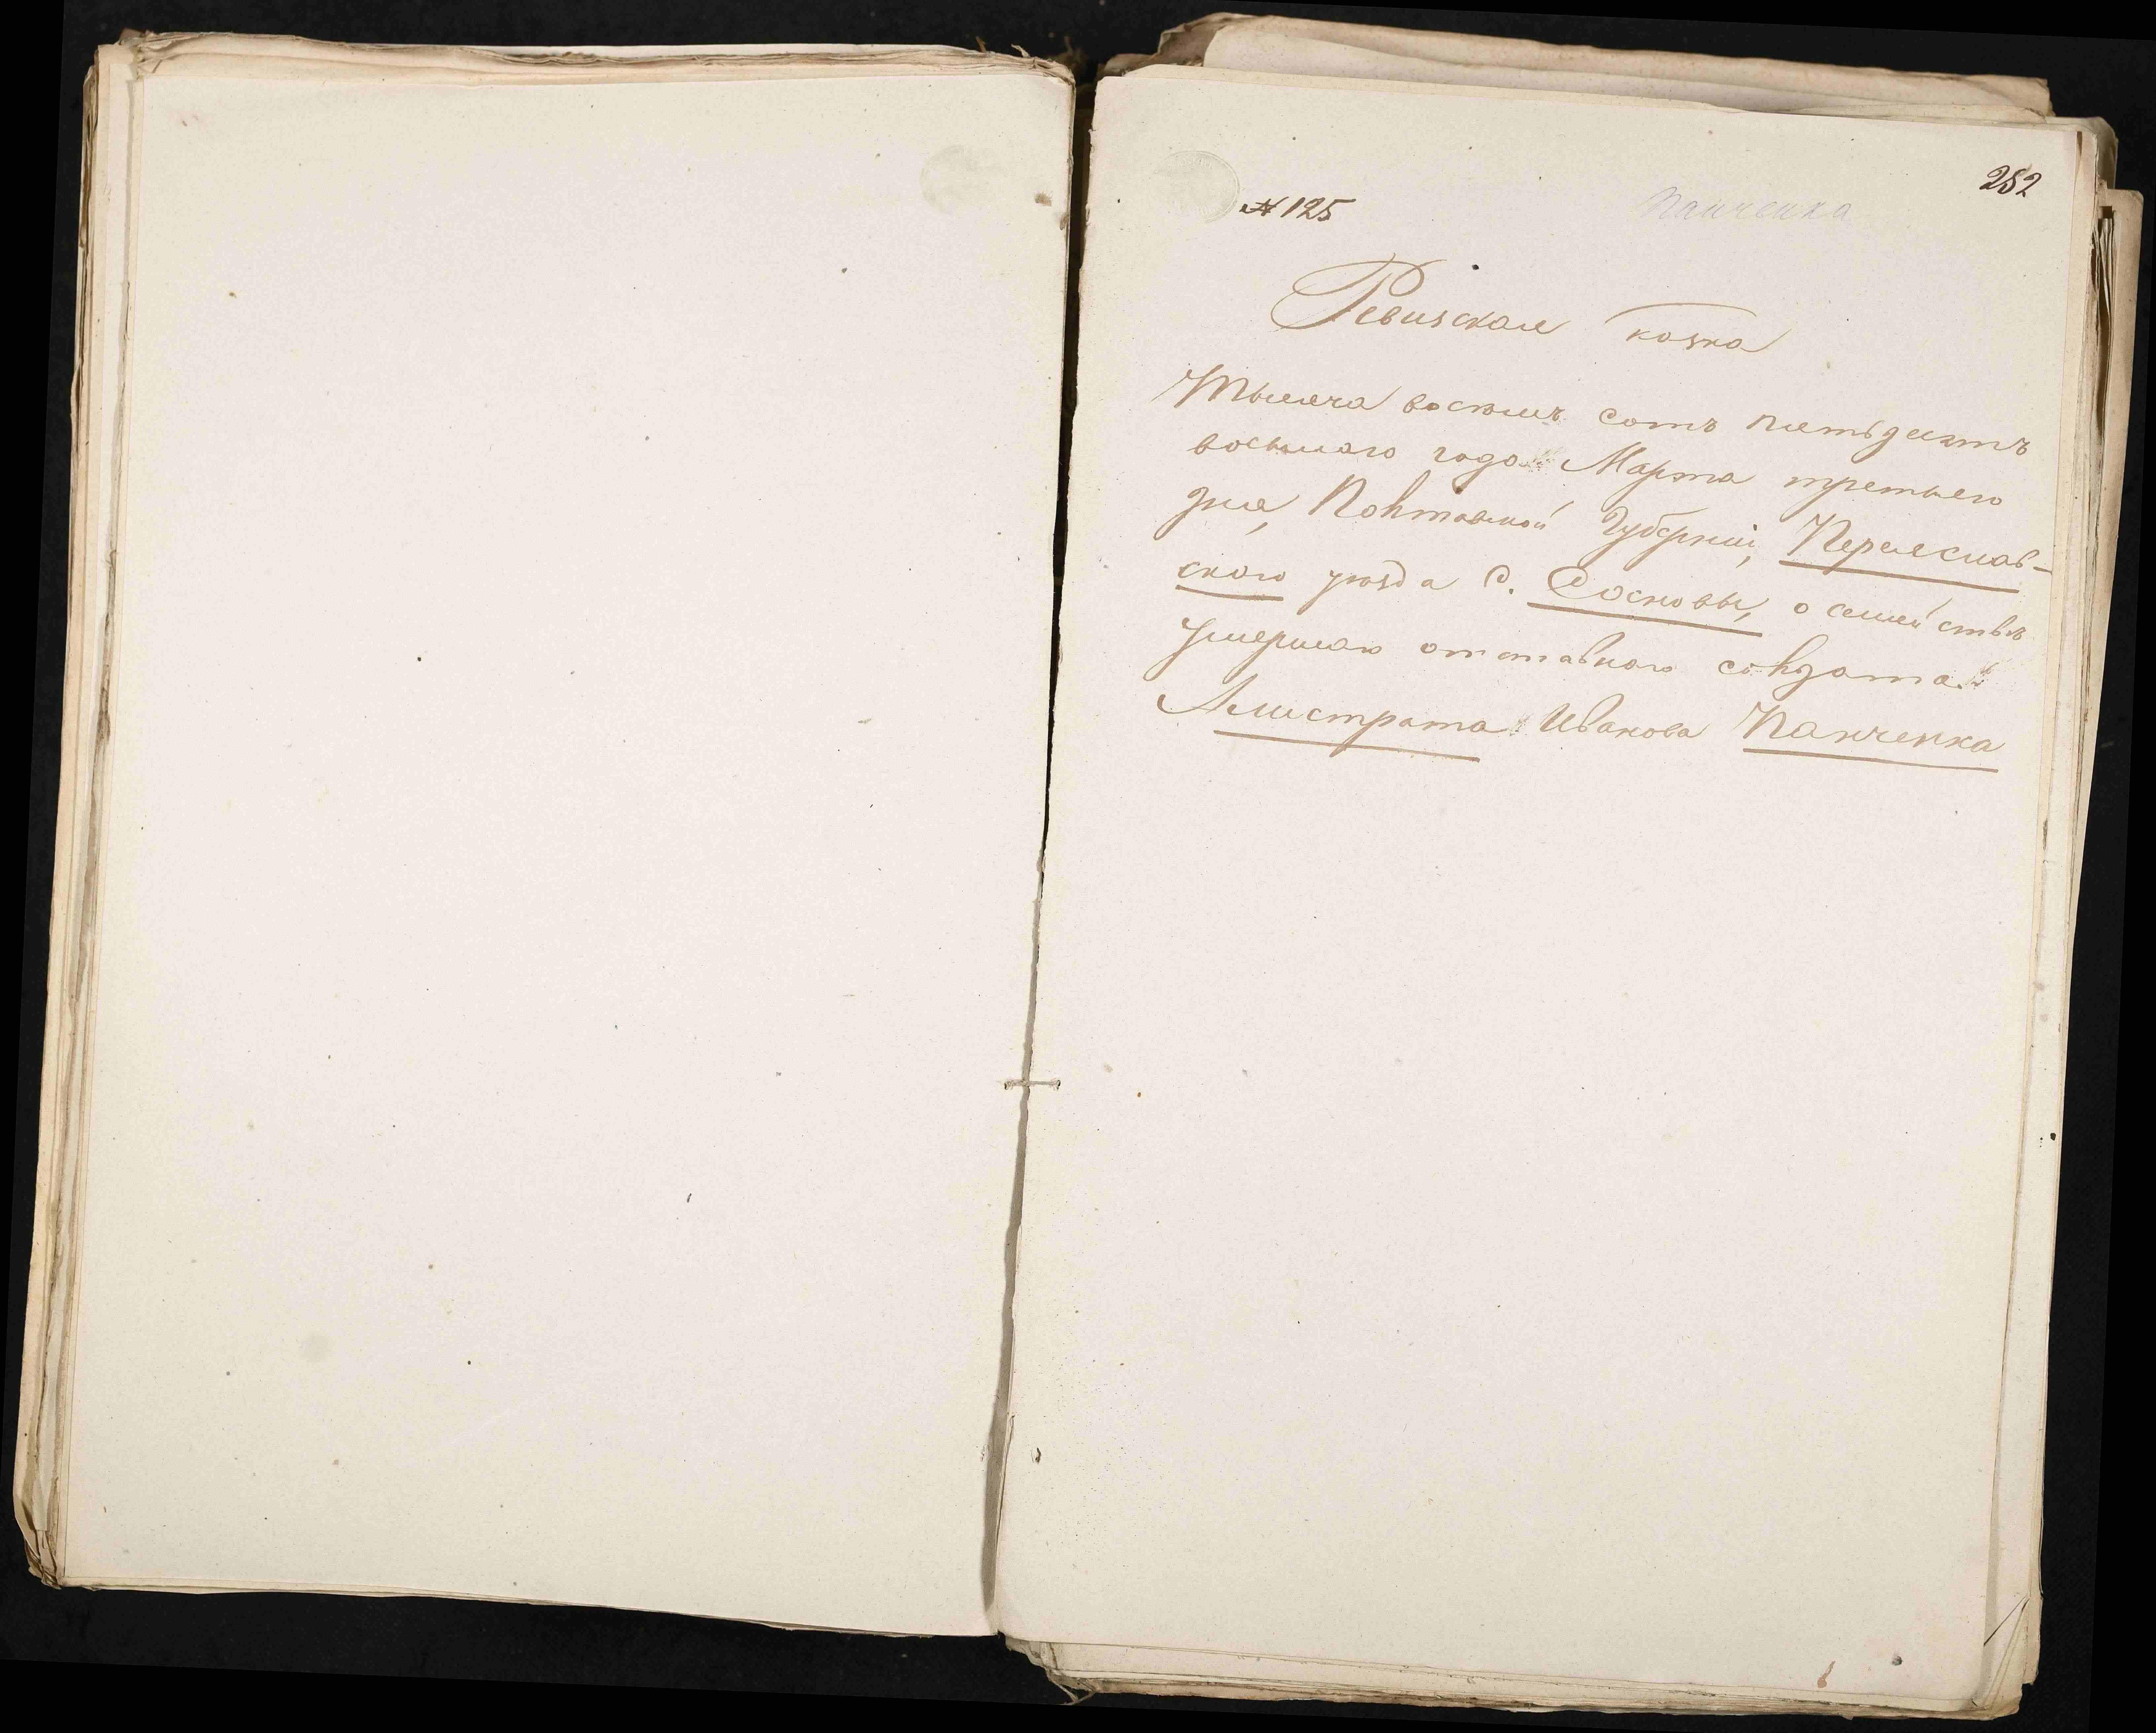 252
№ 125
Панченка
Ревизская Сказка
Тысяча восемь сотъ пятьдесятъ
восьмаго года Марта третьего
дня, Полтавской Губерніи, Переяслав-
скаго уезда С. Сосновы, о семействѣ
умершаго отставнаго солдата
Амистрата Иванова Панченка